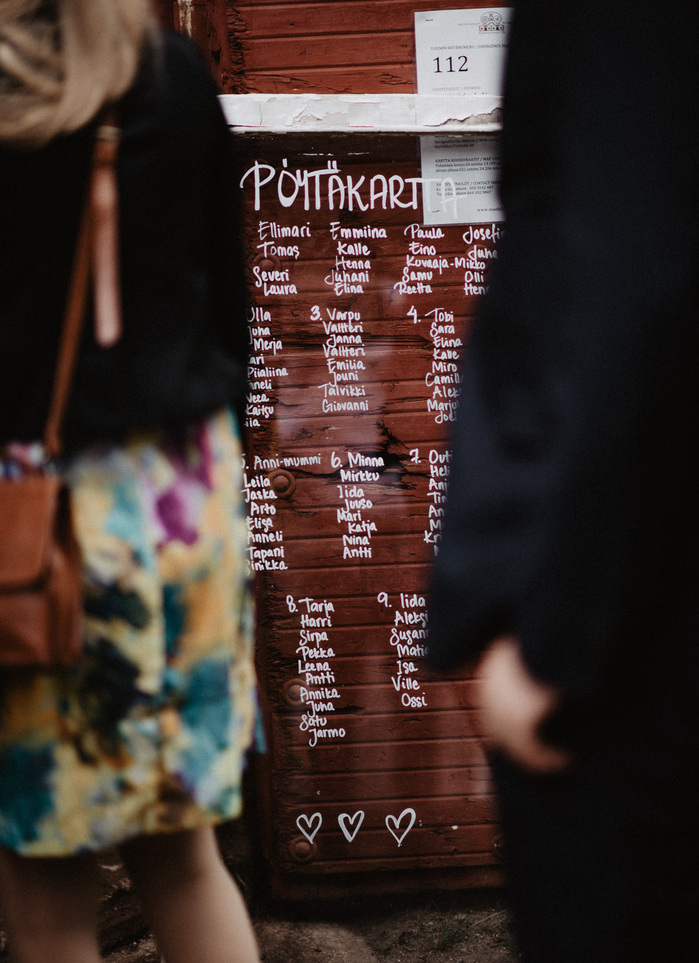 112
PÖYTÄKARTTA
Ellimari
Tomas
Severi
Laura
Emmiina
Kalle
Henna
Juhani
Elina
Paula
Eino
Kuvaaja-Mikko
Samu
Reetta
Josefin
Juha
Olli
Hen
Ulla
Juha
Merja
ari
Piialiina
nneli
Veea
Kaitsu
ila
3. Varpu
Valtteri
Janna
Valtteri
Emilia
Jouni
Talvikki
Giovanni
4. Tobi
Sara
Elina
Kalle
Miro
Camill
Alek
Marju
Joe
5. Anni-mummi
Leila
Jaska
Arto
Elisa
Anneli
Tapani
Sinikka
6. Minna
Mirkku
Iida
Juuso
Mari
Katja
Nina
Antti
7. Out
Heli
An
Ti
An
M
Kr
An
8. Tarja
Harri
Sirpa
Pekka
Leena
Antti
Annika
Juha
Satu
Jarmo
9. Iida
Aleks
Susan
Mati
Isa
Ville
Ossi